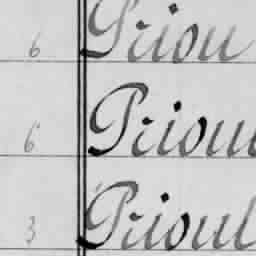 6 Priou
6 Prioul
3 Prioul